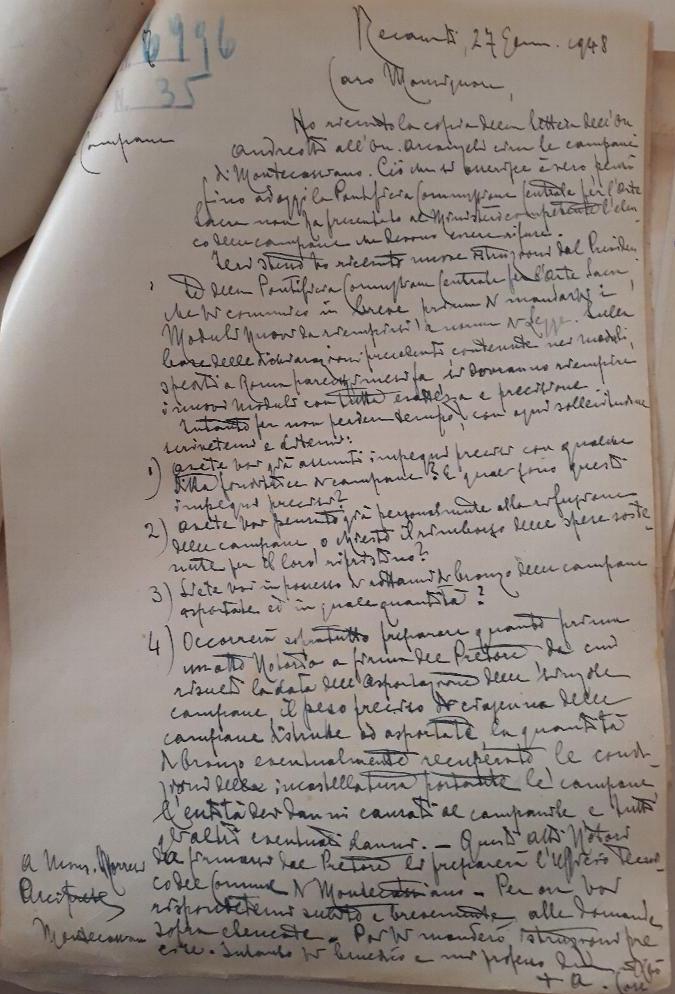 6996
N. 35
Recanati, 27 Genn. 1948
Caro Monsignore,
Campane
Ho ricevuto la copia della lettera dell'On
Andreotti all'On. Arcangeli circa le campane
di Montecassiano. Ciò che si asserisce è vero perchè
fino ad oggi la Pontificia Commissione Centrale per l'Arte
Sacra non ha presentato al Ministero competente l'elen
co delle campane che devono essere rifuse.
Ieri stesso ho ricevuto nuove istruzioni dal Presiden
te della Pontificia Commissione Centrale per l'Arte Sacra
che vi comunico in breve prima di mandarvi i
Moduli nuovi da riempirsi a norma di Legge. Sulla
base delle dichiarazioni precedenti contenute nei moduli,
spediti a Roma parecchi mesi fa si dovranno riempire
i nuovi moduli con tutta esattezza e precisione.
Intanto per non perdere tempo, con ogni sollecitudine
scrivetemi e ditemi:
1) avete voi già assunti impegni precisi con qualche
ditta fonditrice di campane? E quali sono questi
impegni precisi?
2) avete voi pensato già personalmente alla rifusione
delle campane o chiesto il rimborso delle spese soste-
nute per il loro ripristino?
3) Siete voi in possesso di rottami di bronzo delle campane
asportate ed in quale quantità?
4) Occorrerà sopratutto preparare quanto prima
un atto Notorio a firma del Pretore da cui
risulti la data dell'asportazione delle singole
campane, il peso preciso di ciascuna delle
campane distrutte od asportate la quantità
di bronzo eventualmente recuperato le condi-
zioni della incastellatura portante le campane,
l'entità dei danni causati al campanile e tutti
gli altri eventuali danni. — Questi atti Notori
da firmarsi dal Pretore li preparerà l'Ufficio Tecni-
co del Comune di Montecassiano — Per ora voi
rispondetemi subito e brevemente alle domande
sopra elencate. Poi vi manderò istruzioni pre
cise. Intanto vi benedico e mi professo
+ A.
A Mons.
Arciprete
Montecassiano